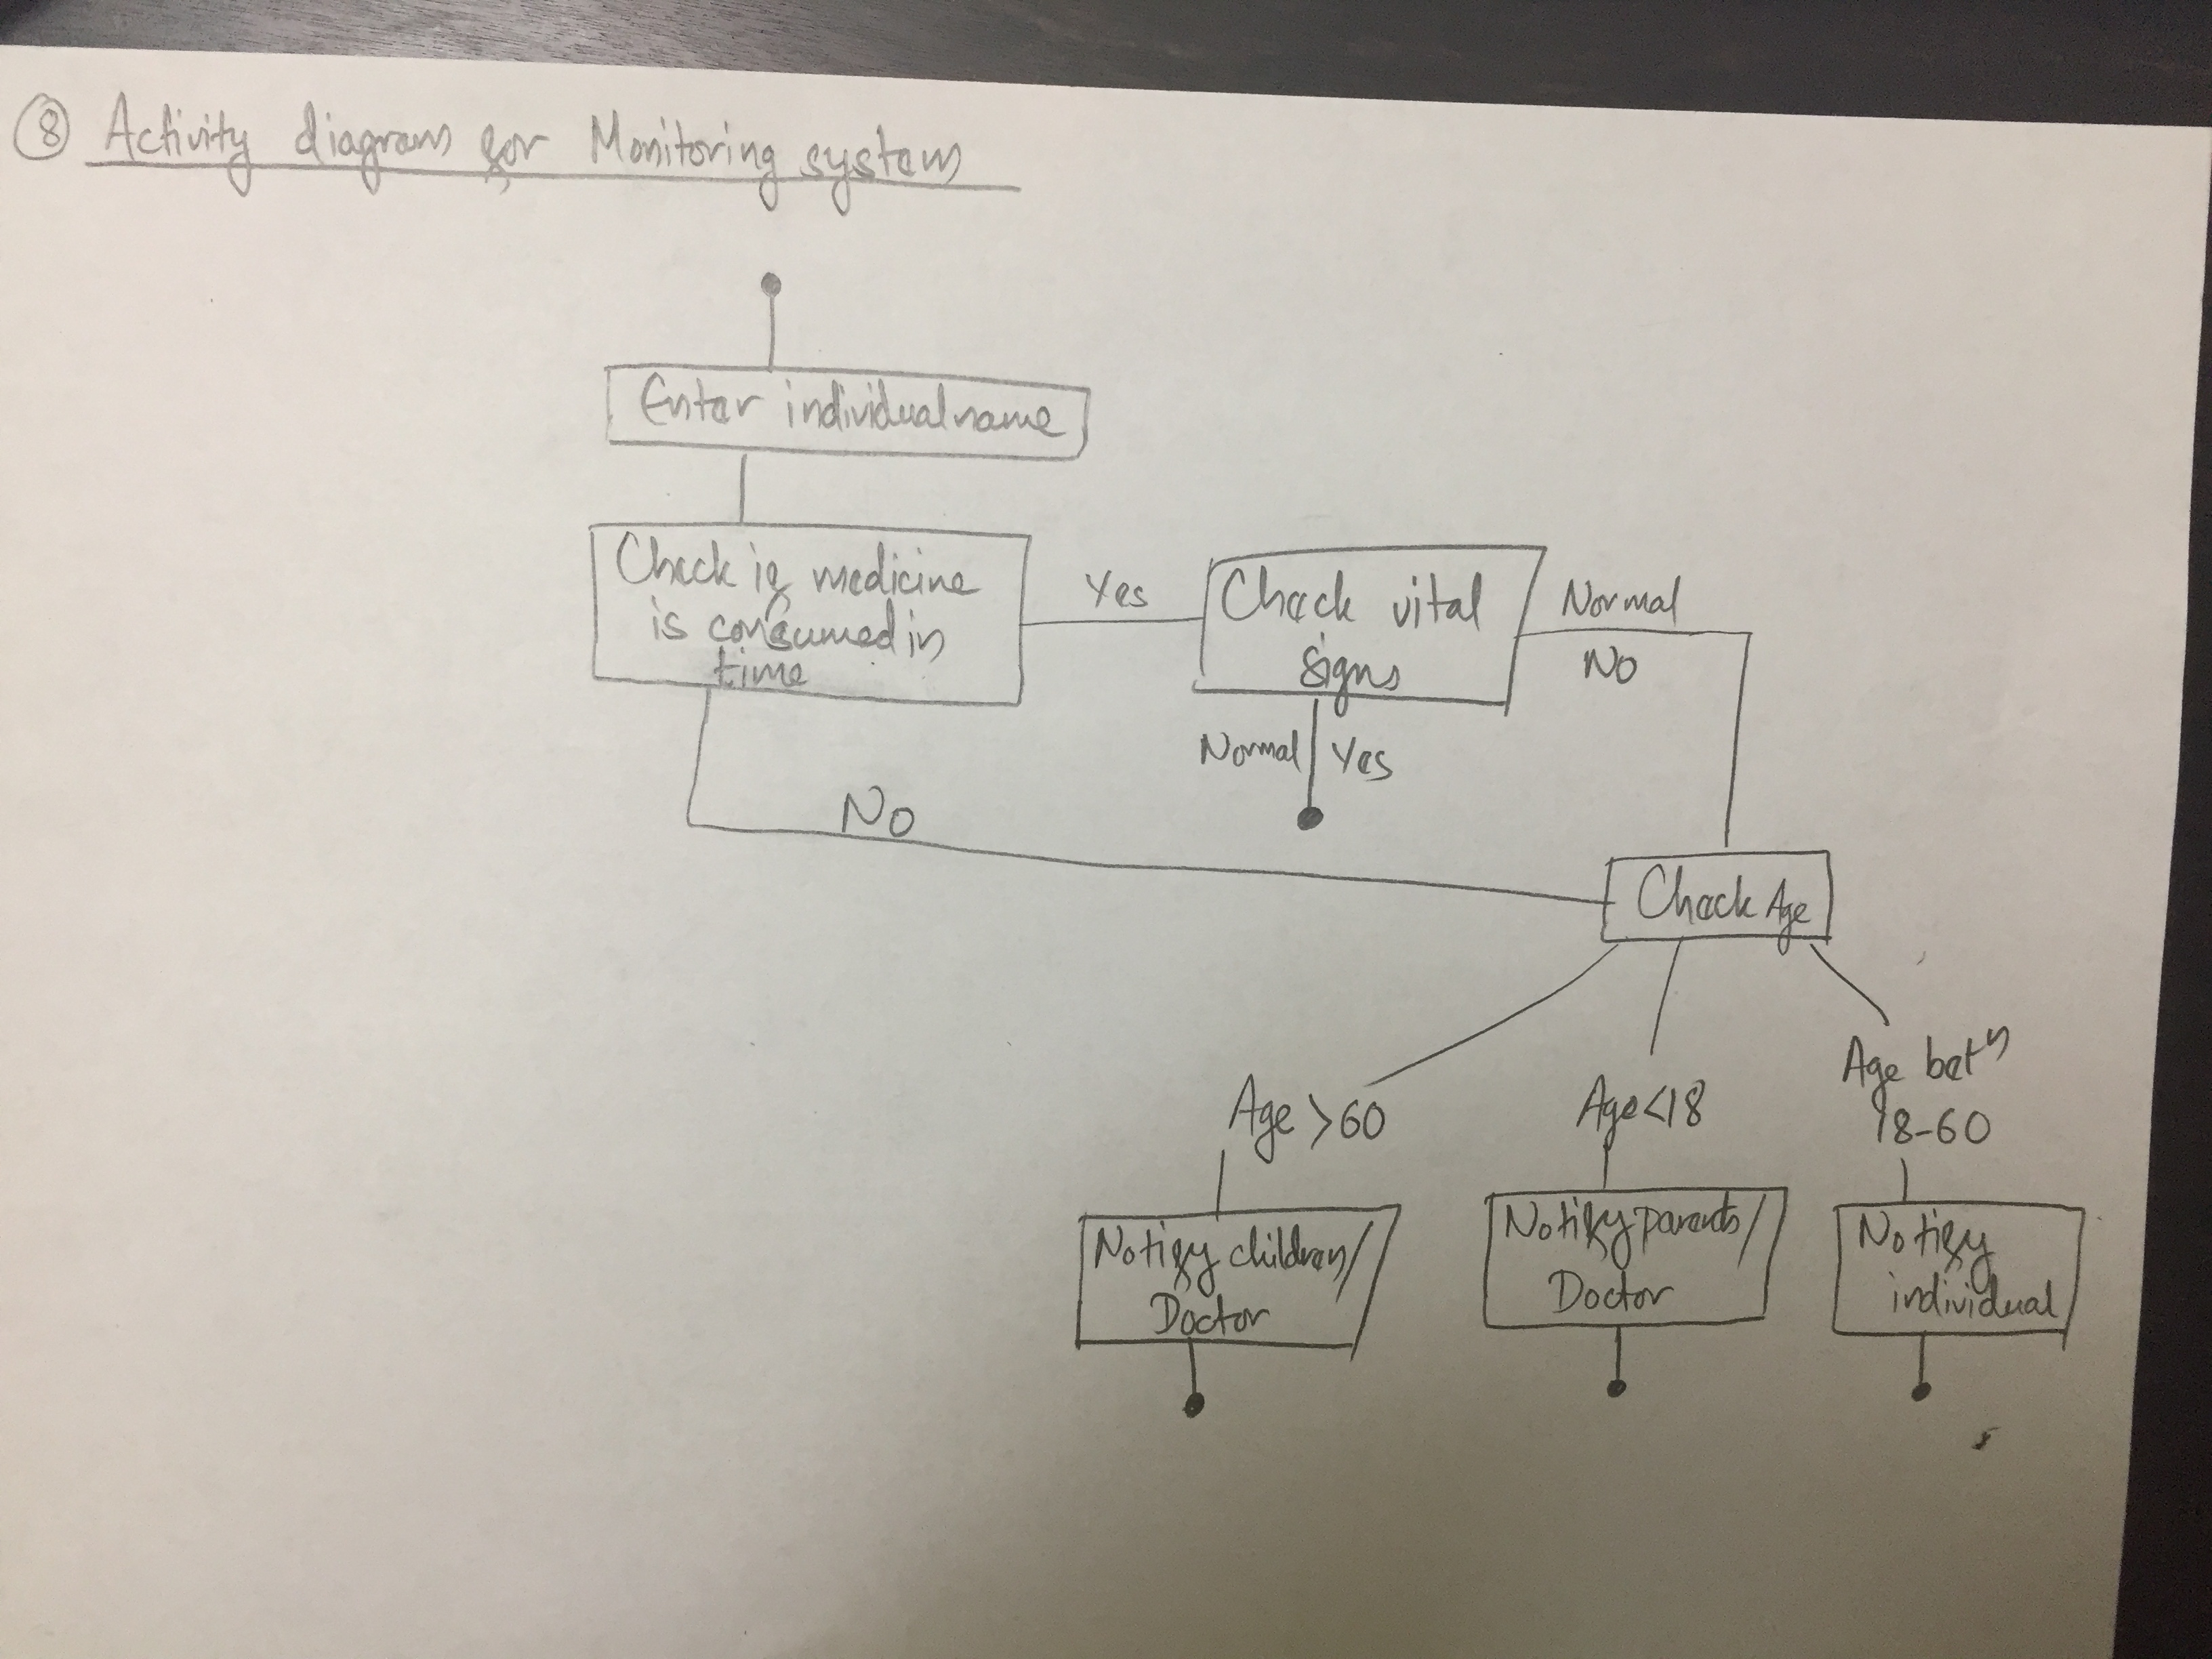 8 Activity diagram for Monitoring system
Enter individual name
Check if medicine
is consumed in
time
Yes
Check vital
signs
Normal
No
Normal Yes
No
Check Age
Age >60
Age <18
Age betn
18-60
Notify children/
Doctor
Notify parents/
Doctor
Notify
individual